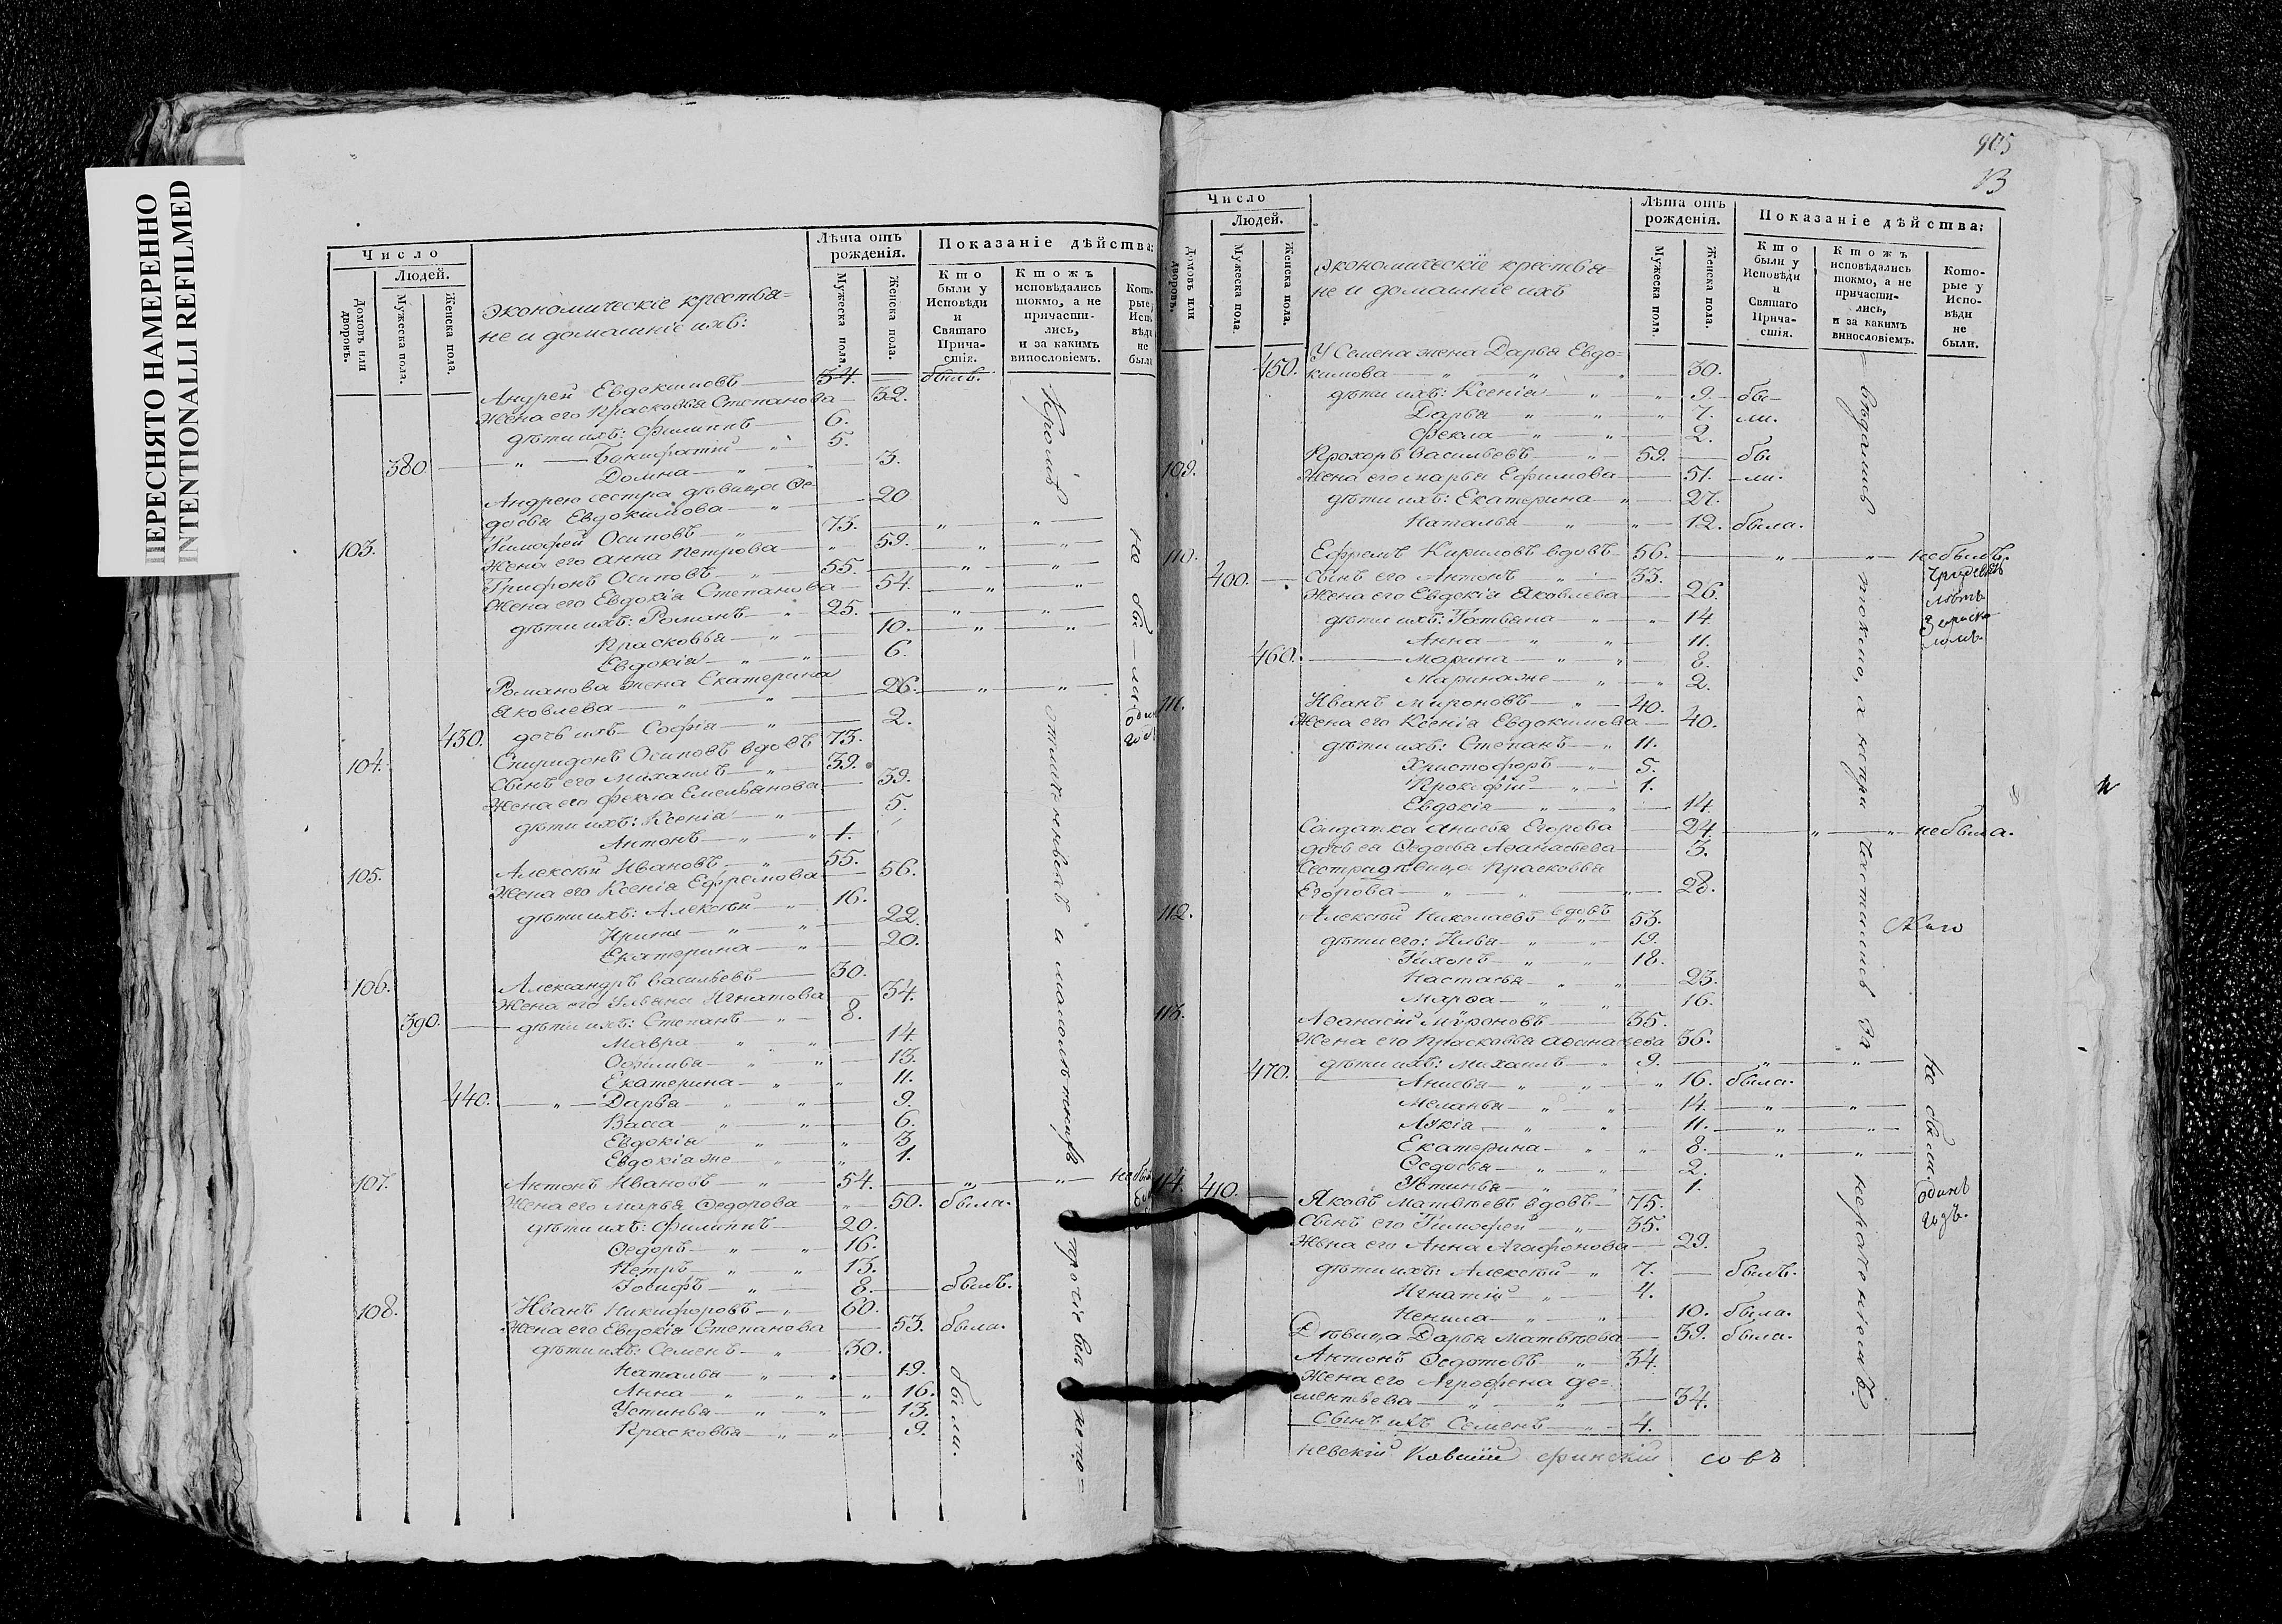 ПЕРЕСНЯТО НАМЕРЕННО
INTENTIONALLI REFILMED
Число
Людей.
Домовъ или дворовъ.
Мужеска пола.
Женска пола.
Экономическіе крестья=
не и домашніе ихъ:
Лѣта отъ рожденія.
Мужеска пола.
Женска пола.
Показаніе дѣйства:
Кто были у Исповѣди и Святаго Причастія.
Ктожъ исповѣдались токмо, а не причастились, и за какимъ винословіемъ.
Андрей Евдокимовъ 34. былъ.
Жена его Прасковья Степанова 32.
дѣти ихъ: Филиппъ 6.
380 Бонифатій 5.
Домна 3.
Андрею сестра дѣвица Ѳе-
досья Евдокимова 20
103. Тимофей Осиповъ 73.
Жена его Анна Петрова 59.
Трифонъ Осиповъ 55.
Жена его Евдокія Степанова 54.
дѣти ихъ: Романъ 25.
Прасковья 10.
Евдокія 6.
Романова жена Екатерина
Яковлева 26.
430. дочь ихъ Софія 2.
104. Спиридонъ Осиповъ вдовъ 73.
Сынъ его Михаилъ 39.
Жена его Фекла Емельянова 39.
дѣти ихъ: Ксенія 5.
Антонъ 1.
105. Алексѣй Ивановъ 55.
Жена его Ксенія Ефремова 56.
дѣти ихъ: Алексѣй 16.
Ирина 22.
Екатерина 20.
106. Александръ Васильевъ 30.
Жена его Ульяна Игнатова 34.
390. дѣти ихъ: Степанъ 8.
Мавра 14
13.
Екатерина 11.
440. Дарья 9.
Васса 6.
Евдокія 3
Евдокія же 1.
107. Антонъ Ивановъ 54.
Жена его Марья Ѳедорова 50. была.
дѣти ихъ: Филиппъ 20.
Ѳедоръ 16.
Петръ 13.
Іосифъ 8. былъ.
108. Иванъ Никифоровъ 60.
Жена его Евдокія Степанова 53. была.
дѣти ихъ: Семенъ 30.
Наталья 19.
Анна 16.
Устинья 13.
Прасковья 9.
были.
Кромѣ
и малолѣтнихъ
прочіе
не бы-ли
905
Число
Людей.
Домовъ или дворовъ.
Мужеска пола.
Женска пола.
Экономическіе крестья=
не и домашніе ихъ
Лѣта отъ рожденія.
Мужеска пола.
Женска пола.
Показаніе дѣйства:
Кто были у Исповѣди и Святаго Причастія.
Ктожъ исповѣдались токмо, а не причастились, и за какимъ винословіемъ.
Которые у Исповѣди не были.
У Семена жена Дарья Евдо=
450. кимова 30.
дѣти ихъ: Ксенія 9. бы-
Дарья 7. ли.
Фекла 2.
109. Прохоръ Васильевъ 59. бы
Жена его Марья Ефимова 51. ли.
дѣти ихъ: Екатерина 27.
Наталья 12. была.
110. Ефремъ Кириловъ вдовъ 56. не былъ.
400. Сынъ его Антонъ 33.
Жена его Евдокія Яковлева 26.
дѣти ихъ: Татьяна 14
Анна 11.
460. Марина 8.
Марина же 2.
111. Иванъ Мироновъ 40.
Жена его Ксенія Евдокимова 40.
дѣти ихъ: Степанъ 11.
Христофоръ 5.
Прокофій 1.
Евдокія 14
Солдатка Анисья Егорова 24. не была.
дочь ея Ѳедосья Аѳанасьева 3.
Сестра дѣвица Прасковья
Егорова 28.
112. Алексѣй Николаевъ вдовъ 53.
дѣти его: Илья 19.
Тихонъ 18.
Настасья 23.
Марѳа 16.
113. Аѳанасій Мироновъ 35.
Жена его Прасковья Аѳанасьева 36.
дѣти ихъ: Михаилъ 9.
470. Анисья 16. была.
Меланья 14.
Лукія 11.
Екатерина 8.
Ѳедосья 2.
Устинья 1.
114. 410. Яковъ Матвѣевъ вдовъ 75.
Сынъ его Тимофей 35.
Жена его Анна Агафонова 29.
дѣти ихъ: Алексѣй 7. былъ.
Игнатій 4.
Ненила 10. была.
Дѣвица Дарья Матвѣева 39. была.
Антонъ Ѳедотовъ 34.
Жена его Агрофена Де=
ментьева 34.
Сынъ ихъ Семенъ 4.
токмо, а непри
частились за
нераченіемъ
не были.
одинъ
годъ.